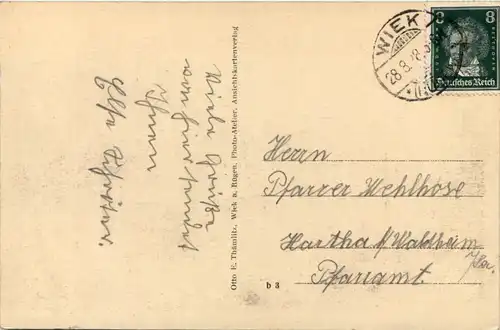 Viele Grüße
von hier sendet
Ihnen
Otto E. Thämlitz, Wiek a. Rügen, Photo-Atelier, Ansichtskartenverlag
b 3
WIEK
28.8.
8 8
Deutsches Reich
Herrn
Pfarrer Wehlhose
Hartha b/Waldheim
Pfarramt.